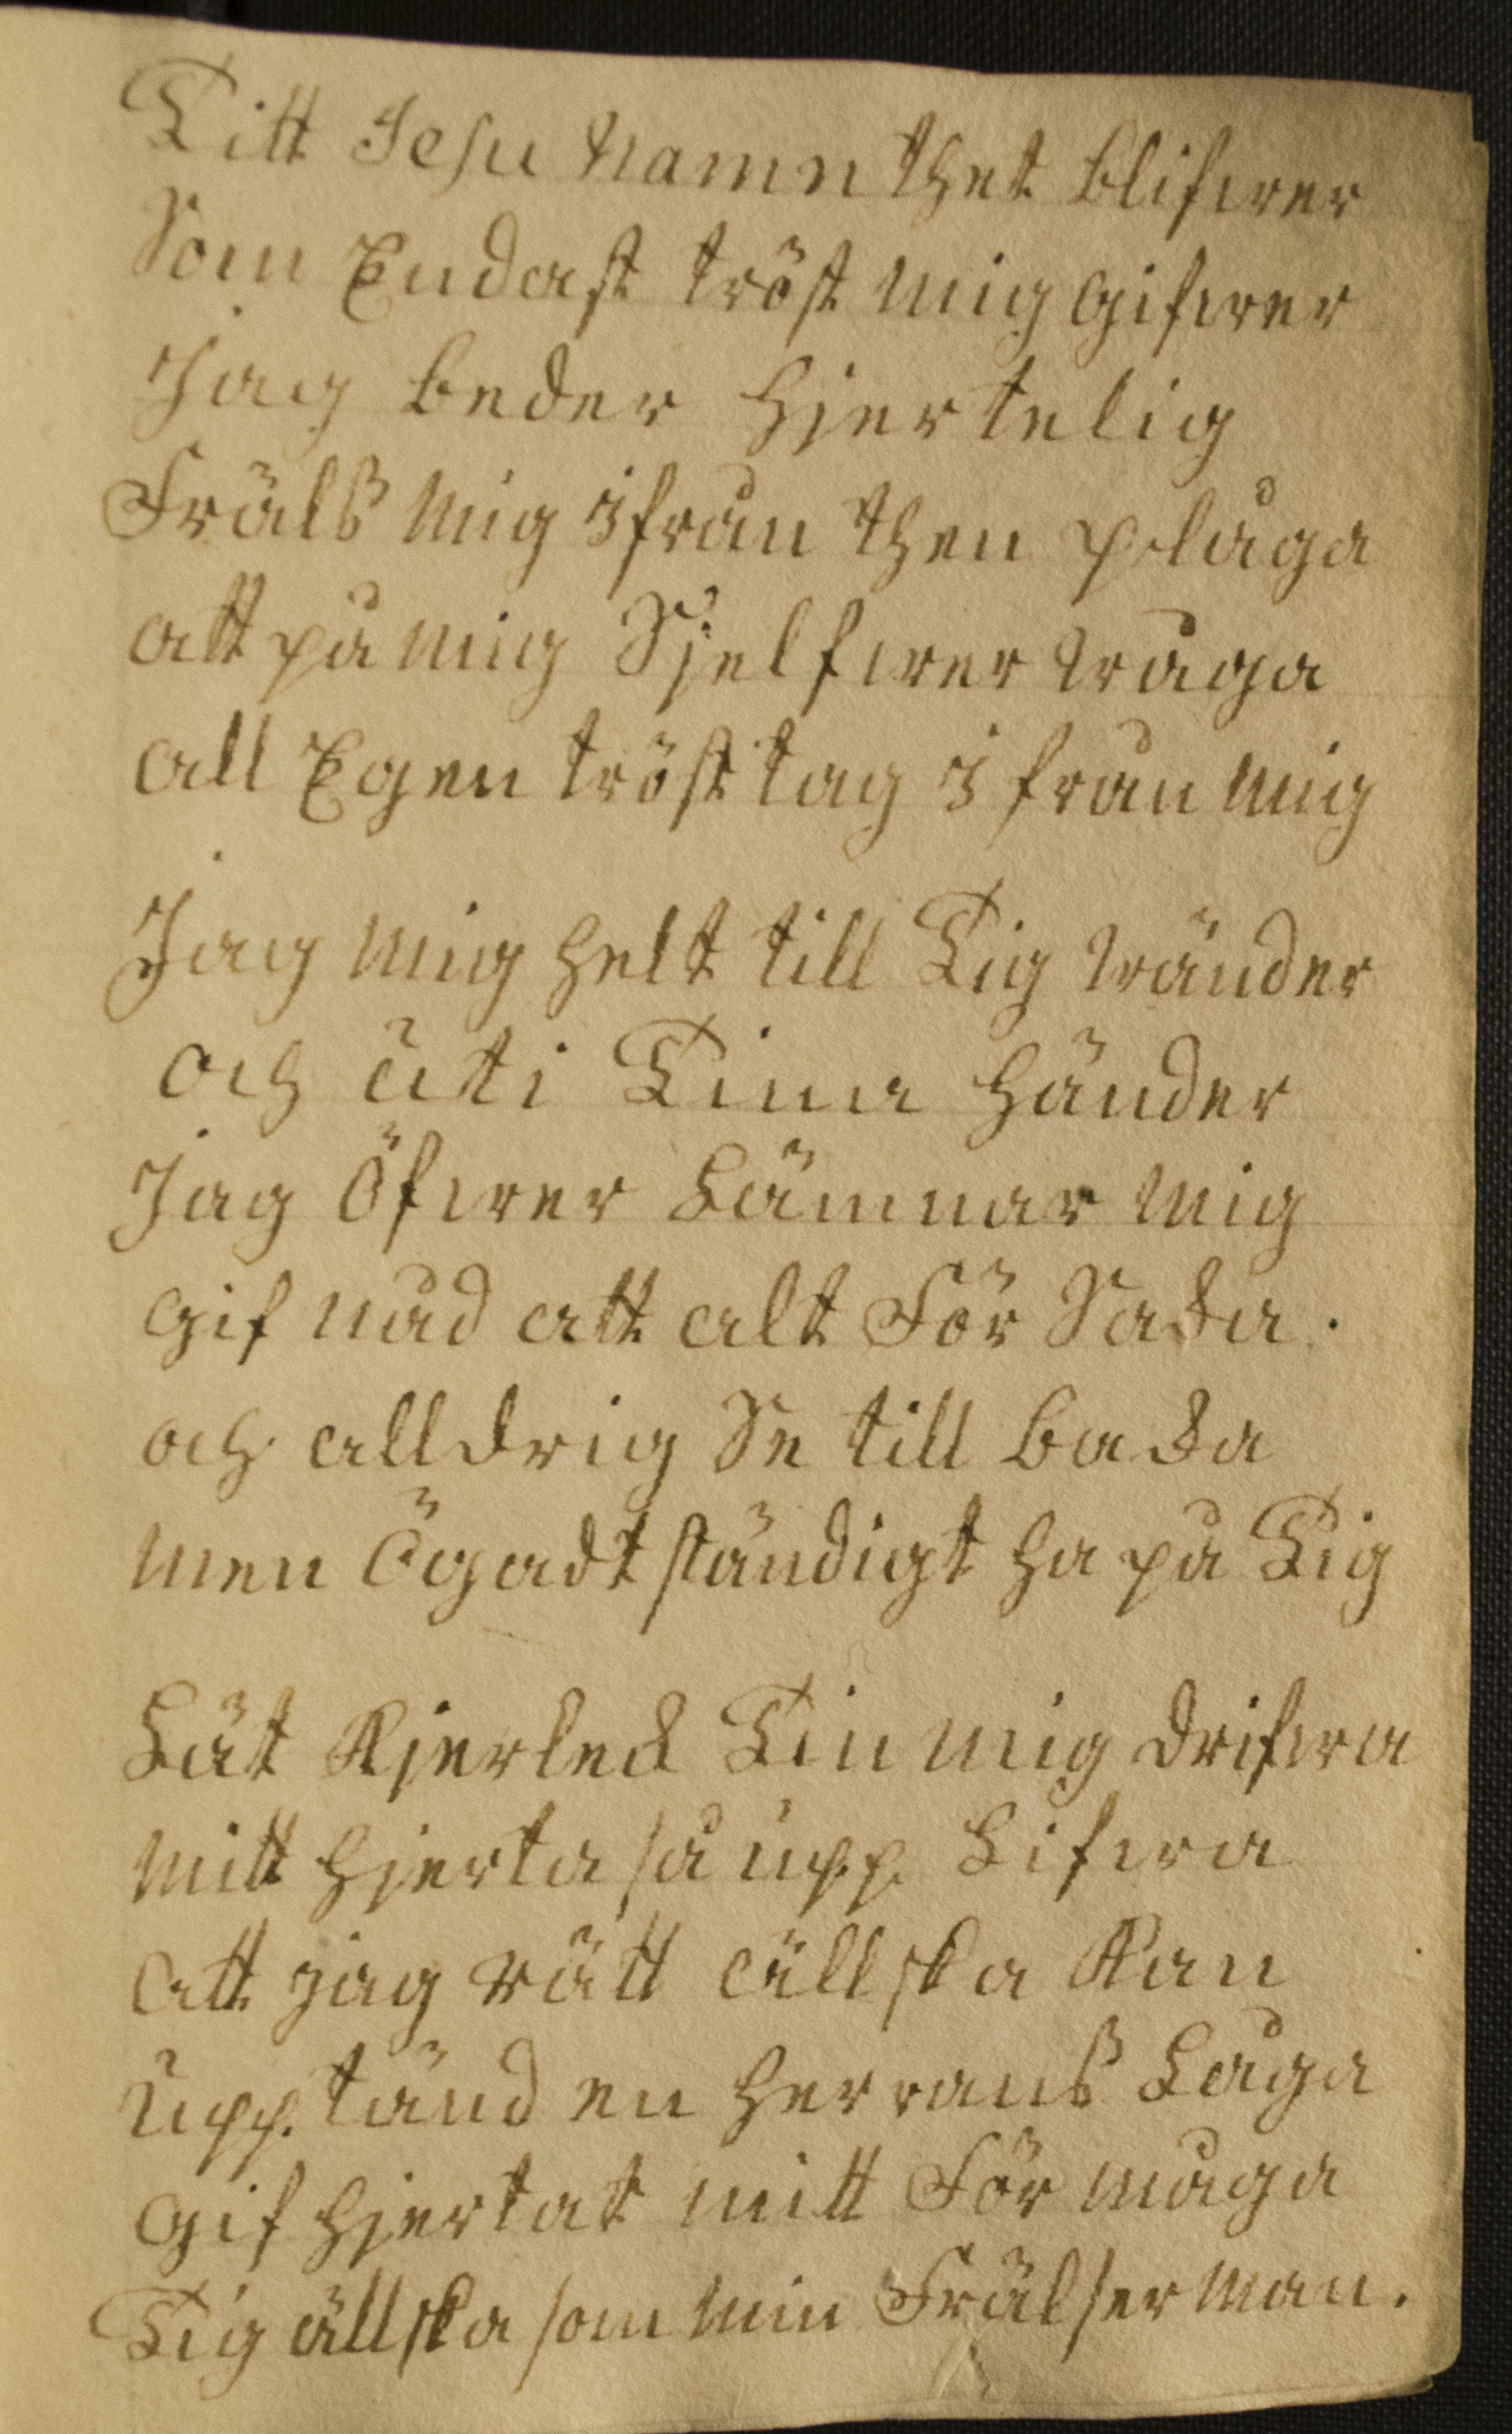 Titt Jesu Namn thet blifwer
Som Endast tröst mig gifwer
Jag beder hjertelig
Fräls mig ifrån then plåga
att på mig Sjelfwer wåga
all Egen tröst tag ifrån mig
Jag mig helt till Tig wänder
och uti Tina händer
Jag öfwer Lämnar mig
gif nåd att alt För Saka.
och alldrig Se till baka
men Ögadt ständigt ha på Tig
Låt Kjerlek Tin mig drifwa
mitt hjerta så upp Lifwa
att jag rätt ällska Kan
upp tänd en herrans Låga
gif hjertat mitt För måga
Tig ällska som min Frälserman.